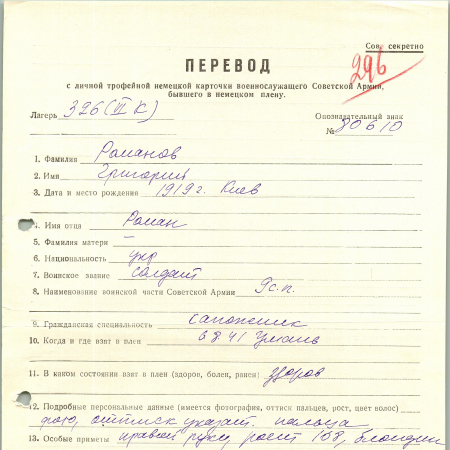 Сов. секретно
296
ПЕРЕВОД
с личной трофейной немецкой карточки военнослужащего Советской Армии,
бывшего в немецком плену.
Лагерь 326 (VI K)
Опознавательный знак
№ 80610
1. Фамилия Романов
2. Имя Григорий
3. Дата и место рождения 1919 г. Киев
4. Имя отца Роман
5. Фамилия матери —
6. Национальность укр
7. Воинское звание солдат
8. Наименование воинской части Советской Армии 9 с.п.
9. Гражданская специальность сапожник
10. Когда и где взят в плен 6 8. 41 Умань
11. В каком состоянии взят в плен (здоров, болен, ранен) здоров
12. Подробные персональные данные (имеется фотография, оттиск пальцев, рост, цвет волос)
фото, оттиск указат. пальца
13. Особые приметы правой руки, рост 168, блондин